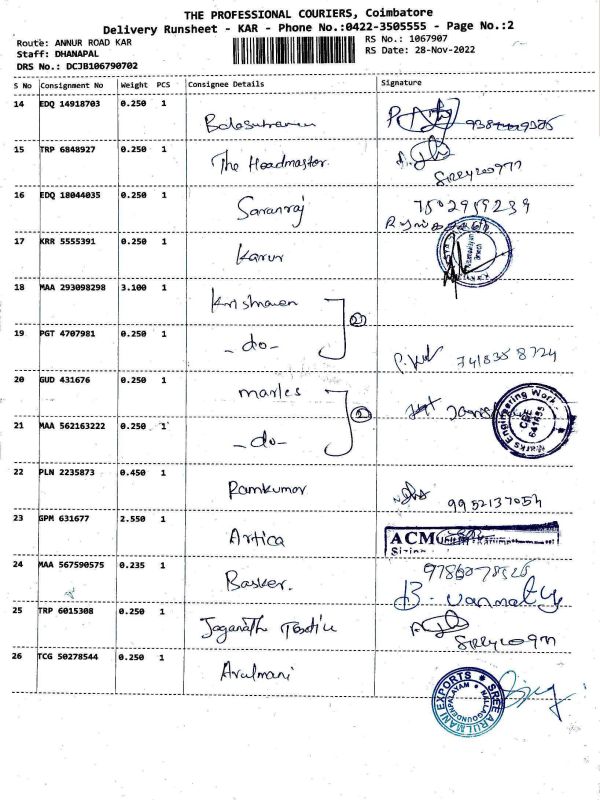 THE PROFESSIONAL COURIERS, Coimbatore
Delivery Runsheet - KAR - Phone No.:0422-3505555 - Page No.:2
Route: ANNUR ROAD KAR
Staff: DHANAPAL
DRS No.: DCJB106790702
RS No.: 1067907
RS Date: 28-Nov-2022
S No Consignment No Weight PCS Consignee Details Signature
14 EDQ 14918703 0.250 1
15 TRP 6848927 0.250 1 The Headmaster.
16 EDQ 18044035 0.250 1 Saranraj 7502959239
17 KRR 5555391 0.250 1 Karur
18 MAA 293098298 3.100 1
19 PGT 4707981 0.250 1 -do- 7418358724
20 GUD 431676 0.250 1 marles
Marks Engineering Work
CBE
641655
21 MAA 562163222 0.250 1 -do-
22 PLN 2235873 0.450 1 Ramkumar 9952137054
23 GPM 631677 2.550 1 Artica
ACM
24 MAA 567590575 0.235 1 Basker.
25 TRP 6015308 0.250 1
26 TCG 50278544 0.250 1 Arulmani
SREE ARULMANI EXPORTS
NALLAGOUNDENPALAYAM